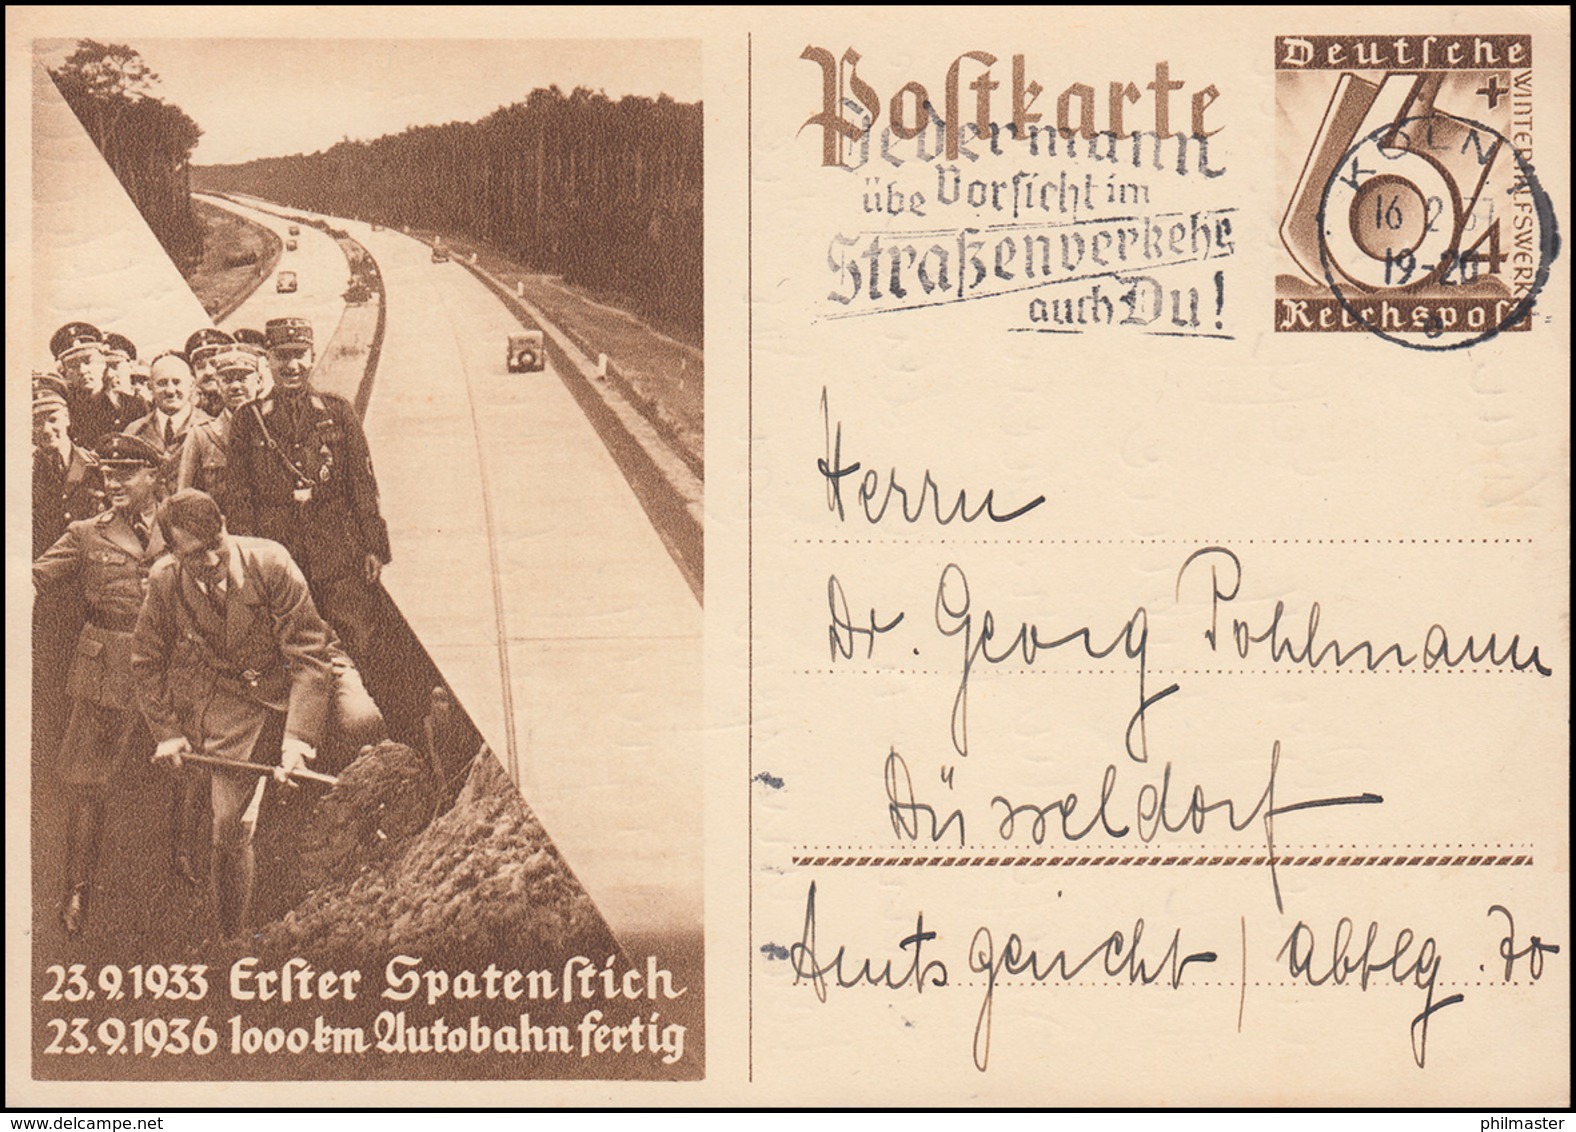 23.9.1933 Erster Spatenstich
23.9.1936 1000 km Autobahn fertig
Postkarte
Jedermann
übe Vorsicht im
Straßenverkehr
auch Du!
Deutsche
6+4
WINTERHILFSWERK
Reichspost
KÖLN 1
16 2 37
19-20
Herrn
Dr. Georg Pohlmann
Düsseldorf
Amtsgericht / Abtlg. 70
philmaster